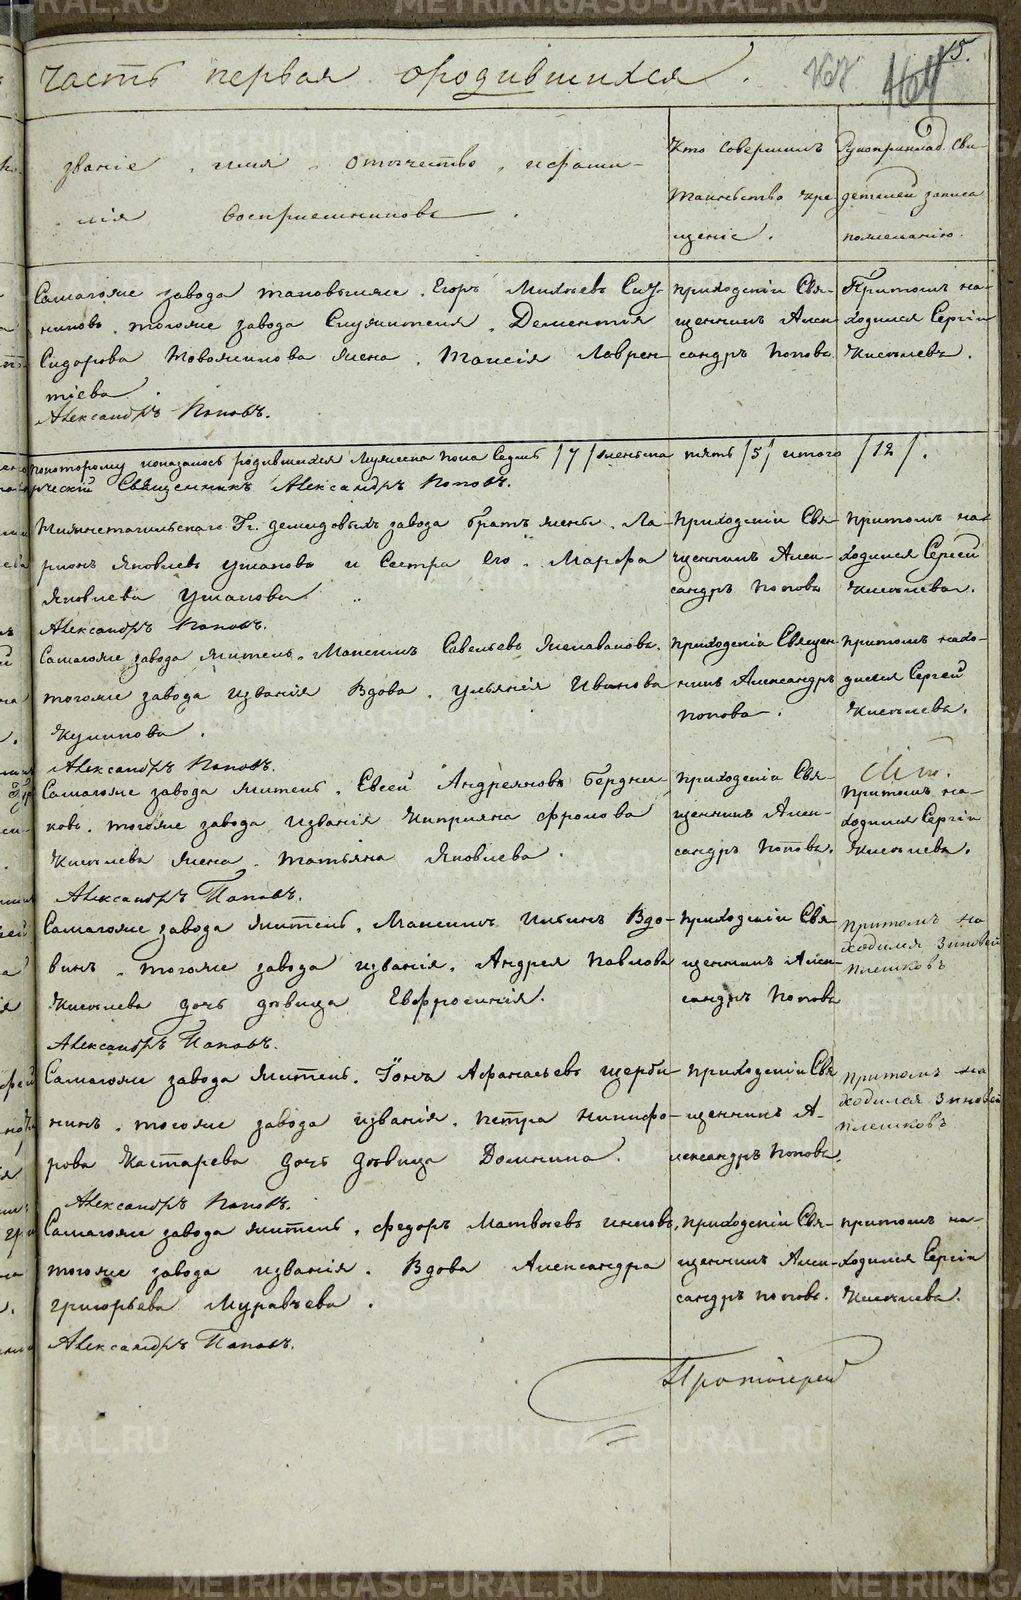 часть первая ородившихся.
164
5.
званіе, имя, отечество, ифами-
лія воспріемниковъ.
Кто совершилъ
Таинъство кре
щеніе.
Рукоприклад. сви-
детелей записа
пожеланію.
Самагоже завода таковыеже. Егоръ
тогоже завода Служителя. Дементія
Сидорова жена. Таисія Лаврен
тіева.
Александръ Поповъ.
приходскій Свя-
щенникъ Алек-
сандръ Поповъ
Притомъ на-
ходился Сергій
Киселевъ.
покоторому показалось родившихся Мужеска пола Седмь /7/ женска пять /5/ итого /12/.
Священникъ Александръ Поповъ.
Нижнетагильскаго Гг. демидовыхъ завода братъ жены. Ла-
ріонъ Яковлевъ Ушаковъ и Сестра его. Марфа
Яковлева Ушакова.
Александръ Поповъ.
приходскій Свя-
щенникъ Алек-
сандръ Поповъ
притомъ на-
ходился Сергей
Киселевъ.
Самагоже завода житель. Максимъ Савельевъ
тогоже завода изванія Вдова. Ульянія Иванова
Куликова.
Александръ Поповъ.
приходскій Священ-
никъ Александръ
Поповъ.
притомъ нахо-
дился Сергей
Киселевъ.
Самагоже завода житель. Евсей Андреяновъ бердни-
ковъ. тогоже завода изванія Кипріяна фролова
Киселева жена. Татьяна Яковлева.
Александръ Поповъ.
приходскій Свя-
щенникъ Алек-
сандръ Поповъ.
Притомъ на-
ходился Сергій
Киселевъ.
Самагоже завода житель. Максимъ Ильинъ Вдо-
винъ. тогоже завода изванія. Андрея Павлова
Киселева дочь девица Евфросинія.
Александръ Поповъ.
приходскій Свя-
щенникъ Алек-
сандръ Поповъ
притомъ на
ходился Зиновей
Плешковъ
Самагоже завода житель. Іона Афанасьевъ щерби-
нинъ. тогоже завода изванія. петра никифо-
рова Кастарева дочь девица Домника.
Александръ Поповъ.
приходскій Свя
щенникъ А-
лександръ Поповъ.
притомъ на
ходился Зиновей
Плешковъ
Самагоже завода житель. федоръ Матвеевъ
тогоже завода изванія. Вдова Александра
григорьева Муравьева.
Александръ Поповъ.
приходскій Свя-
щенникъ Алек-
сандръ Поповъ.
притомъ на-
ходился Сергій
Киселевъ.
Протоіерей
METRIKI.GASO-URAL.RU